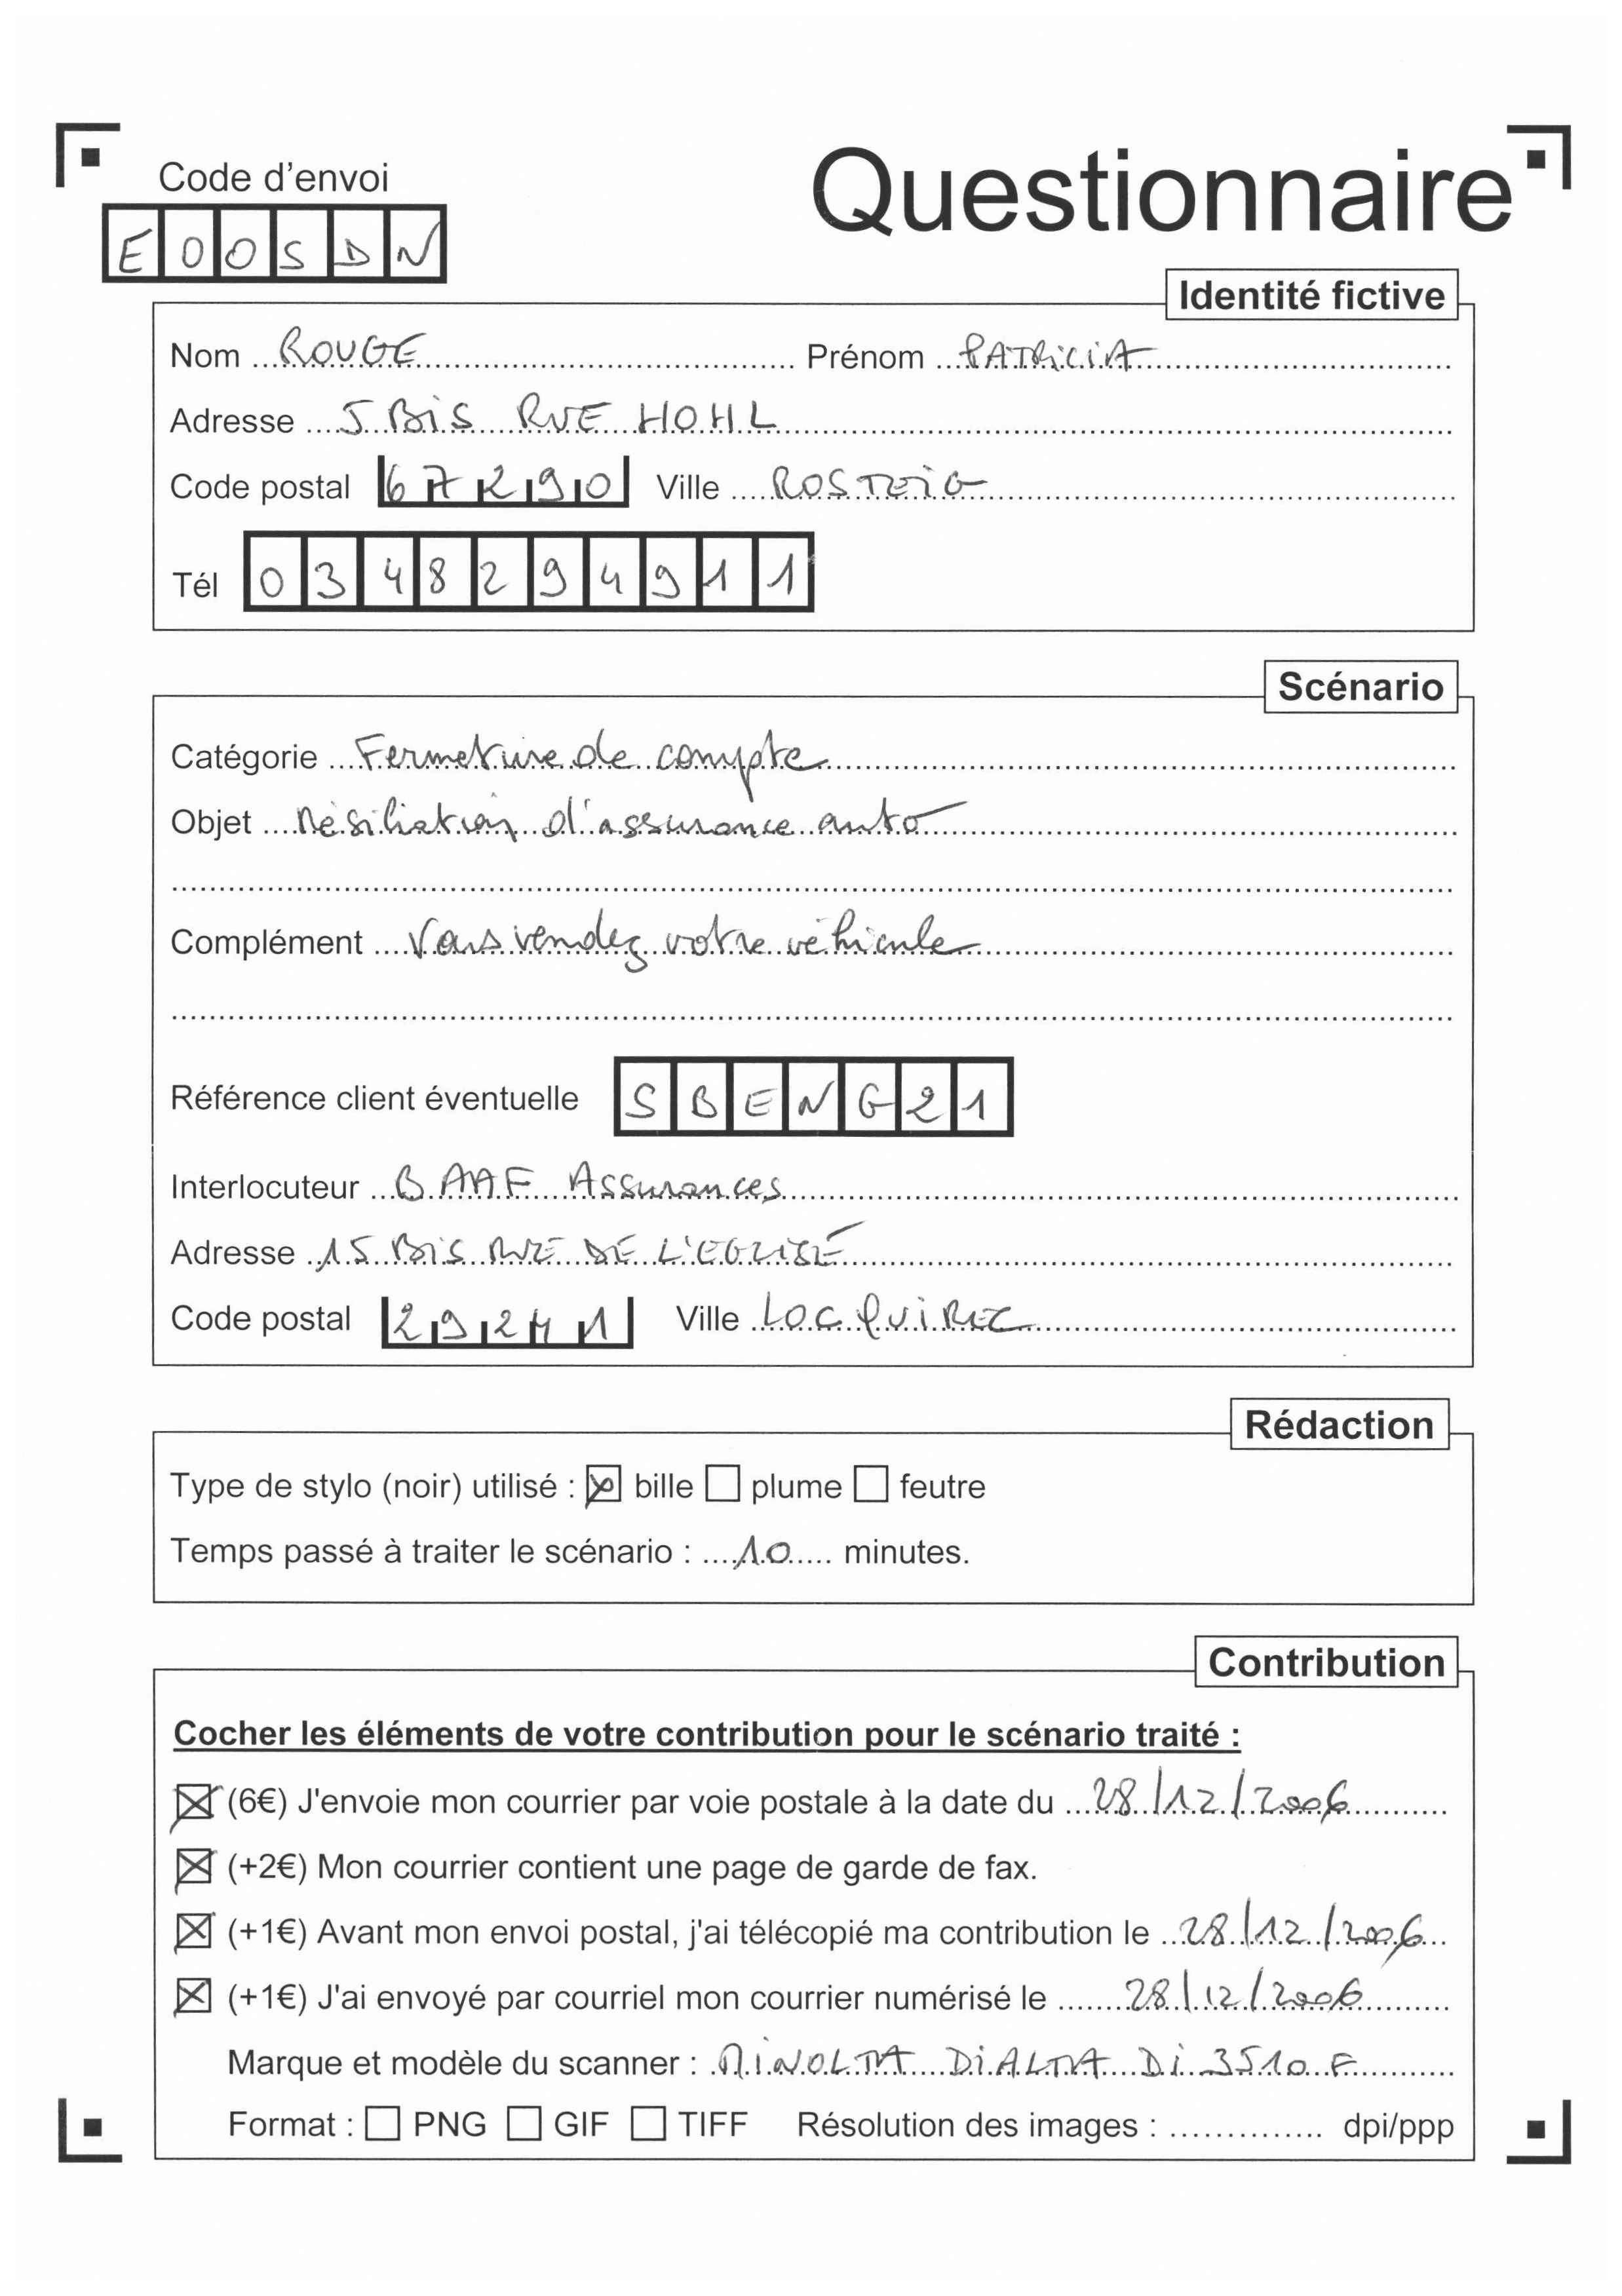 Code d'envoi
Questionnaire
E00SDN
Identité fictive
Nom ROUGE Prénom PATRICIA
Adresse 5 BIS RUE HOHL
Code postal 67290 Ville ROSTEIG
Tél 0348294911
Scénario
Catégorie Fermeture de compte
Objet Résiliation d'assurance auto
Complément Vous vendez votre véhicule
Référence client éventuelle SBENG21
Interlocuteur BAAF Assurances
Adresse 15 BIS RUE DE L'EGLISE
Code postal 29241 Ville LOCQUIREC
Rédaction
Type de stylo (noir) utilisé : ☒ bille ☐ plume ☐ feutre
Temps passé à traiter le scénario : 10 minutes.
Contribution
Cocher les éléments de votre contribution pour le scénario traité :
☒ (6€) J'envoie mon courrier par voie postale à la date du 28/12/2006
☒ (+2€) Mon courrier contient une page de garde de fax.
☒ (+1€) Avant mon envoi postal, j'ai télécopié ma contribution le 28/12/2006
☒ (+1€) J'ai envoyé par courriel mon courrier numérisé le 28/12/2006
Marque et modèle du scanner : MINOLTA DIALTA Di 3510 F
Format : ☐ PNG ☐ GIF ☐ TIFF Résolution des images : .............. dpi/ppp